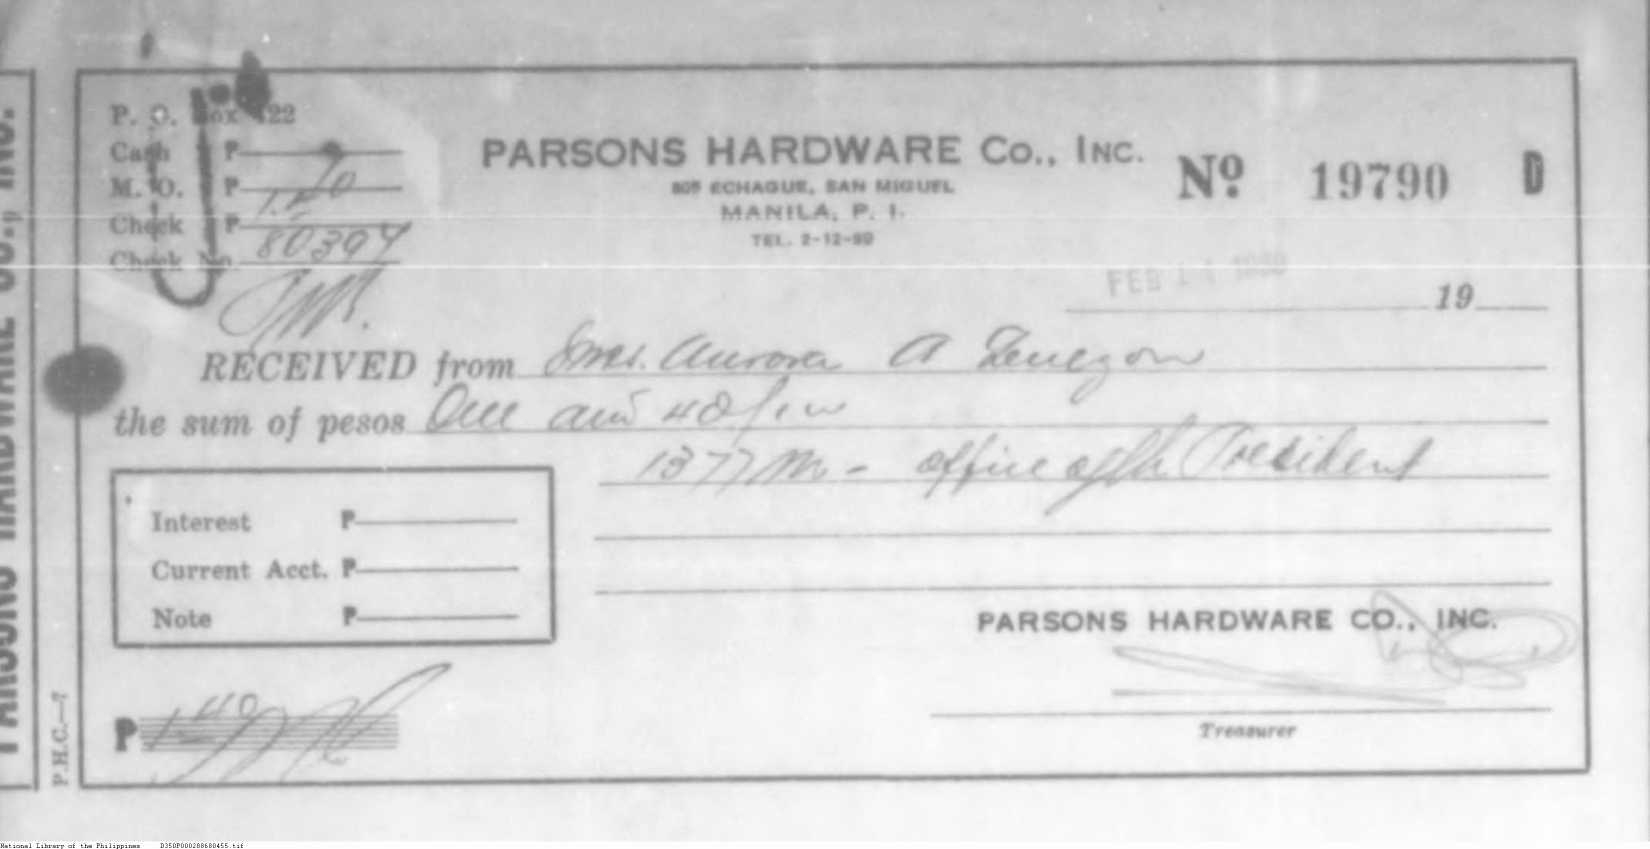 P. O. Box 422
Cash P
M. O. P
Check P 1.40
Check No. 80394
PARSONS HARDWARE Co., INC.
805 ECHAGUE, SAN MIGUEL
MANILA, P. I.
TEL. 2-12-69
Nº 19790 D
FEB 19
RECEIVED from Mrs. Aurora A
the sum of pesos One and 40/
1377 M - Office of the President
Interest P
Current Acct. P
Note P
PARSONS HARDWARE CO., INC.
Treasurer
P 1.40
P.H.C.—7
PARSONS HARDWARE CO., INC.
National Library of the Philippines D350P000208680455.tif